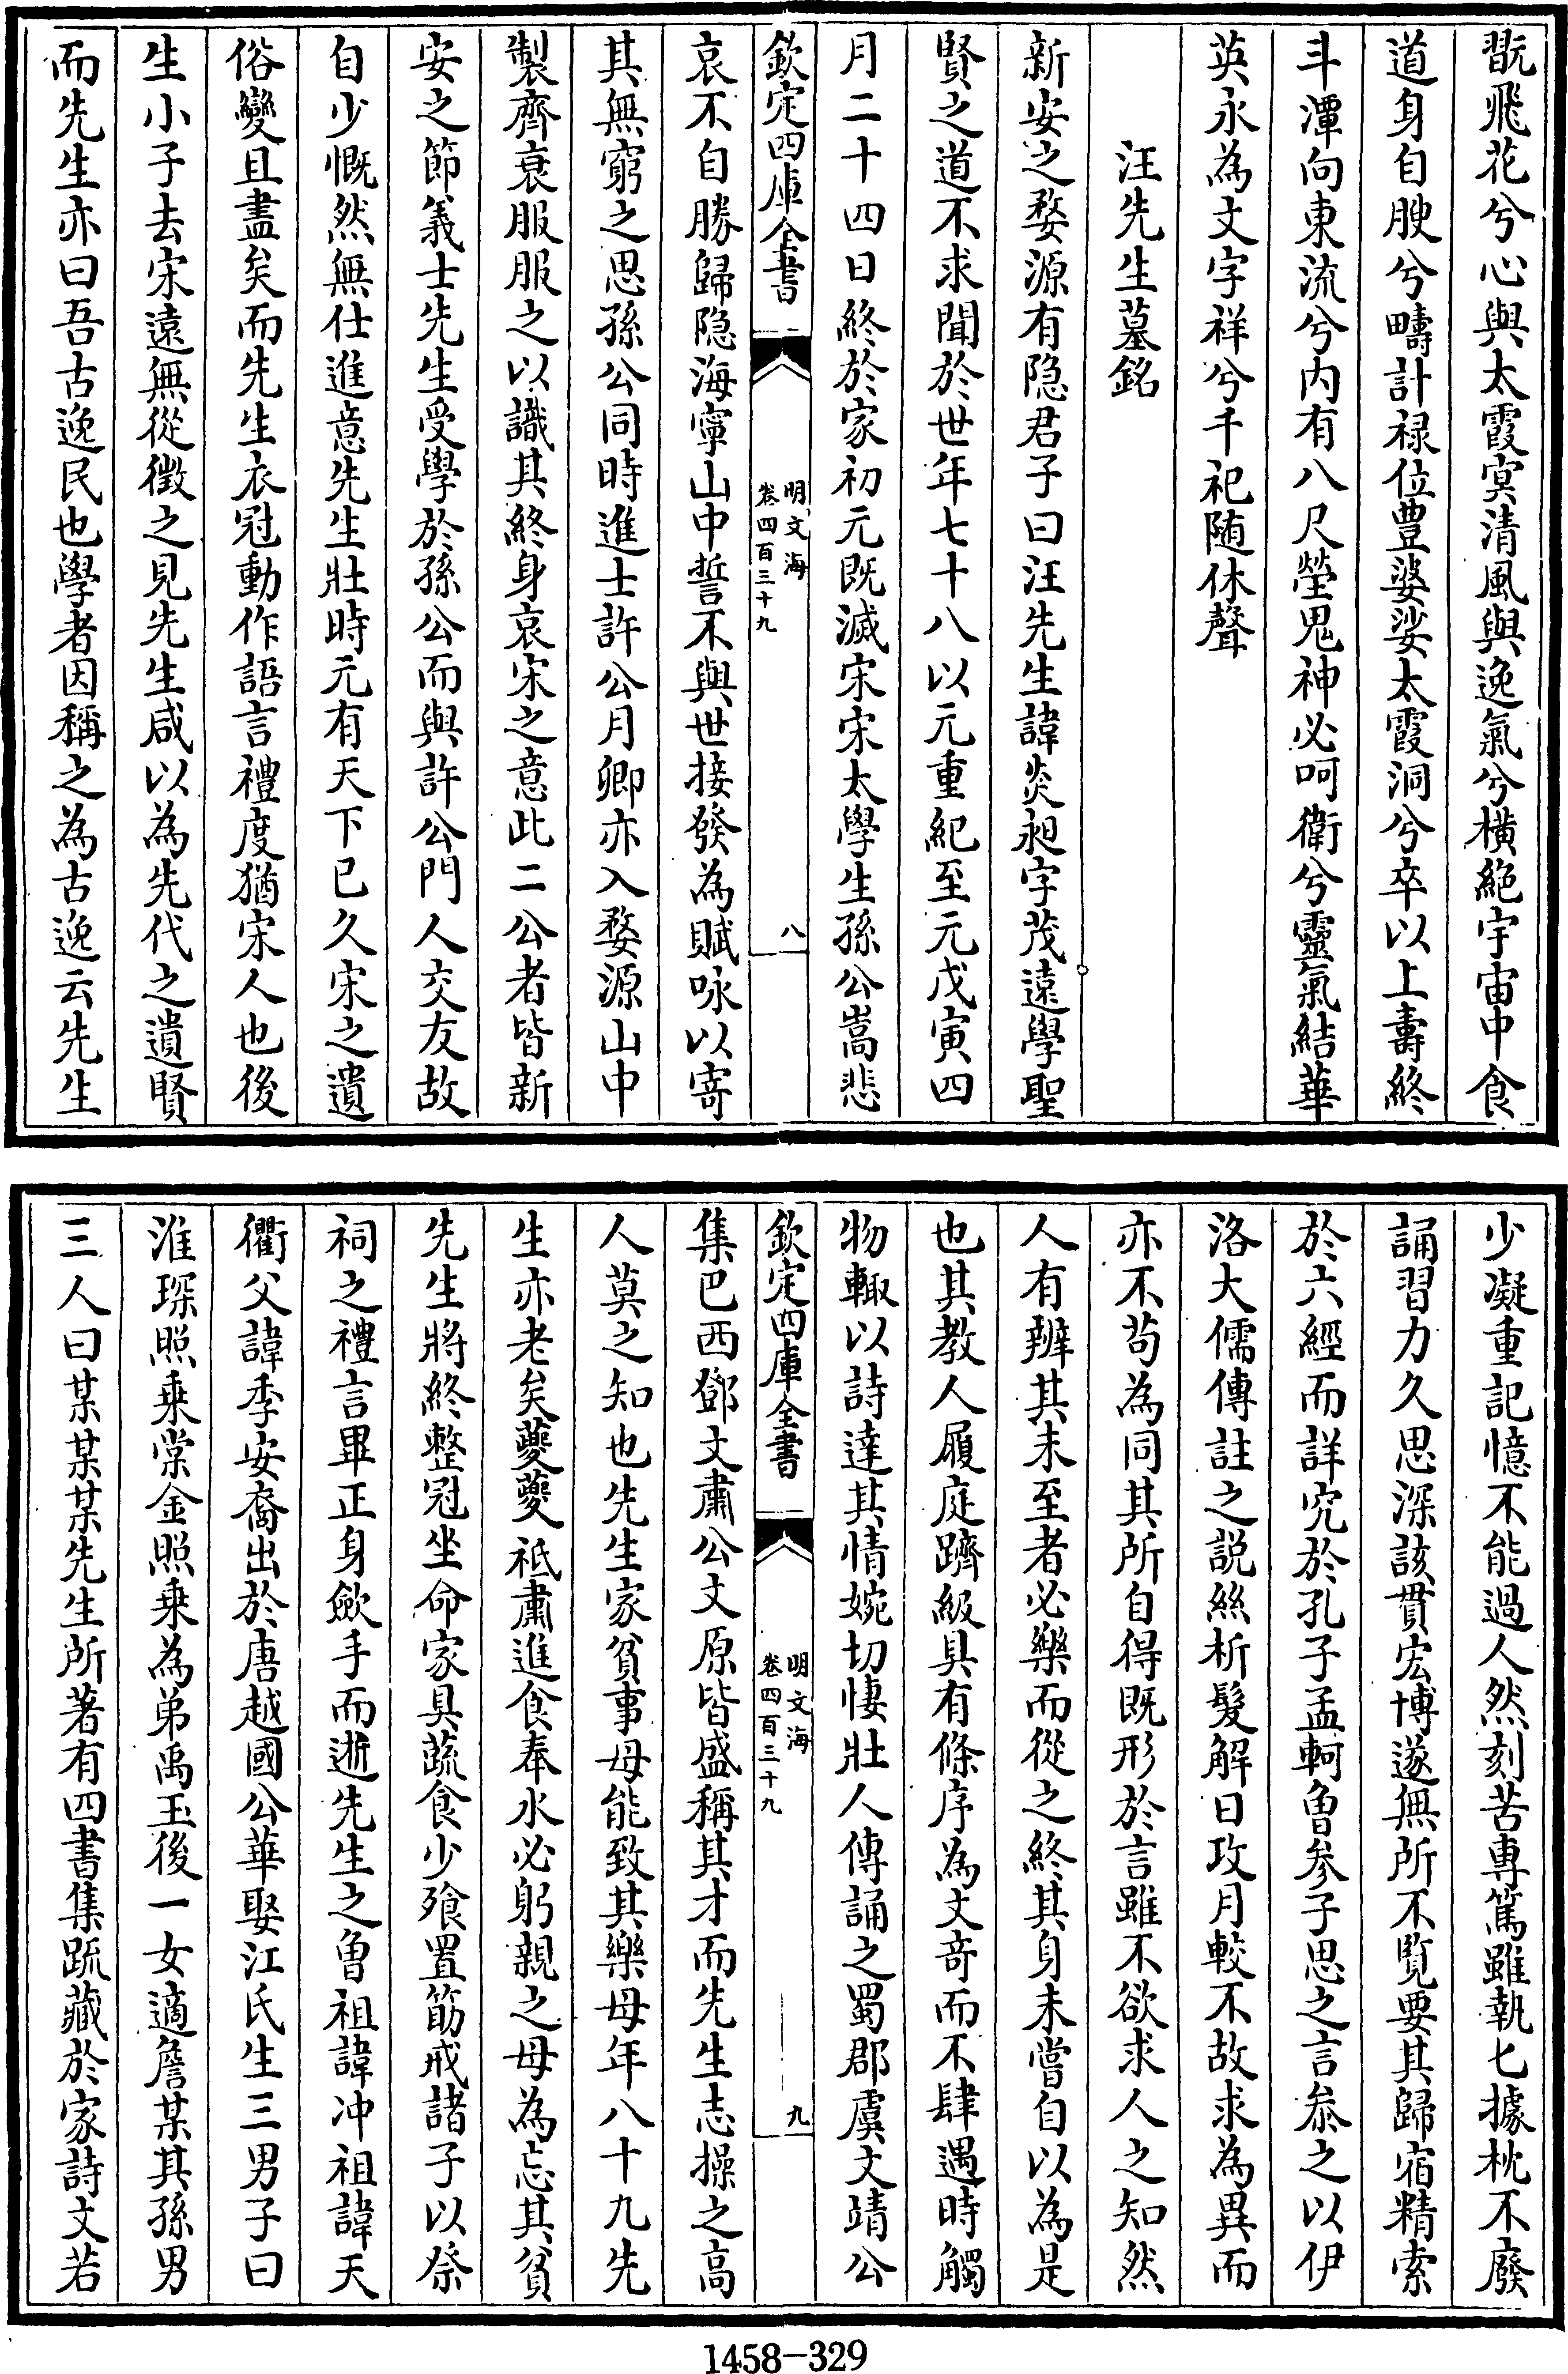 翫飛花兮心與太霞㝠清風與逸氣兮橫絶宇宙中食
道身自腴兮疇計禄位豊婆娑太霞洞兮卒以上壽終
斗潭向東流兮内有八尺塋鬼神必呵衛兮靈氣結華
英永為文字祥兮千祀随休聲
汪先生墓銘
新安之婺源有隐君子曰汪先生諱炎昶字茂遠學聖
賢之道不求聞於世年七十八以元重紀至元戊寅四
月二十四日終於家初元既滅宋宋太學生孫公嵩悲
欽定四庫全書
明文海
卷四百三十九
八
哀不自勝歸隐海寧山中誓不與世接發為賦咏以寄
其無窮之思孫公同時進士許公月卿亦入婺源山中
製齊衰服服之以識其終身哀宋之意此二公者皆新
安之節義士先生受學於孫公而與許公門人交友故
自少慨然無仕進意先生壯時元有天下已久宋之遺
俗變且盡矣而先生衣冠動作語言禮度猶宋人也後
生小子去宋遠無從徵之見先生咸以為先代之遺賢
而先生亦曰吾古逸民也學者因稱之為古逸云先生
少凝重記憶不能過人然刻苦專篤雖執匕據枕不廢
誦習力久思深該貫宏博遂無所不覽要其歸宿精索
於六經而詳究於孔子孟軻曾參子思之言叅之以伊
洛大儒傳註之說絲析髮解日攻月較不故求為異而
亦不苟為同其所自得既形於言雖不欲求人之知然
人有辨其未至者必樂而從之終其身未嘗自以為是
也其教人履庭躋級具有條序為文竒而不肆遇時觸
物輙以詩達其情婉切悽壯人傳誦之蜀郡虞文靖公
欽定四庫全書
明文海
卷四百三十九
九
集巴西鄧文肅公文原皆盛稱其才而先生志操之高
人莫之知也先生家貧事母能致其樂母年八十九先
生亦老矣夔夔祇肅進食奉水必躬親之母為忘其貧
先生將終整冠坐命家具蔬食少飱置筯戒諸子以祭
祠之禮言畢正身歛手而逝先生之曾祖諱冲祖諱天
衢父諱季安裔出於唐越國公華娶江氏生三男子曰
淮琛照乗棠金照乗為弟禹玉後一女適詹某其孫男
三人曰某某某先生所著有四書集疏藏於家詩文若
1458-329